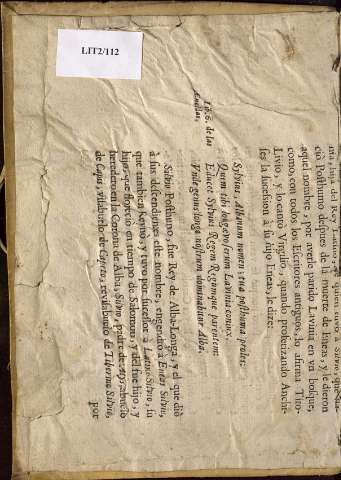 LIT2/112
nia, hija del Rey Latino,
ciò Posthumo despues de la muerte de Eneas, y le dieron
aquel nombre, por averlo parido Livinia en vn bosque,
como, con todos los Escritores antiguos, lo afirma Tito-
Livio, y lo cantò Virgilio, quando profetizando Anchi-
ses la sucesion à su hijo Eneas, le dize:
Sylvius, Albanum nomen, tua posthuma proles:
Quem tibi longævo serum Lavinia coniux,
Educet sylvis, Regem, Regumque parentem:
Vnde genus longa nostrum dominabitur Alba.
Lib. 6. de las
Eneidas.
Silvio Posthumo, fue Rey de Alba-Longa, y el que diò
à sus descendientes este nombre, engendrò à Eneas Silvio,
que tambien Reynò, y tuvo por sucessor à Latino Silvio, su
hijo, que floreciò en tiempo de Salomon, y del fue hijo, y
heredero en la Corona de Alba, Silvio,
de Capis, visabuelo de Capeto, revisabuelo de Tiberino Silvio,
por